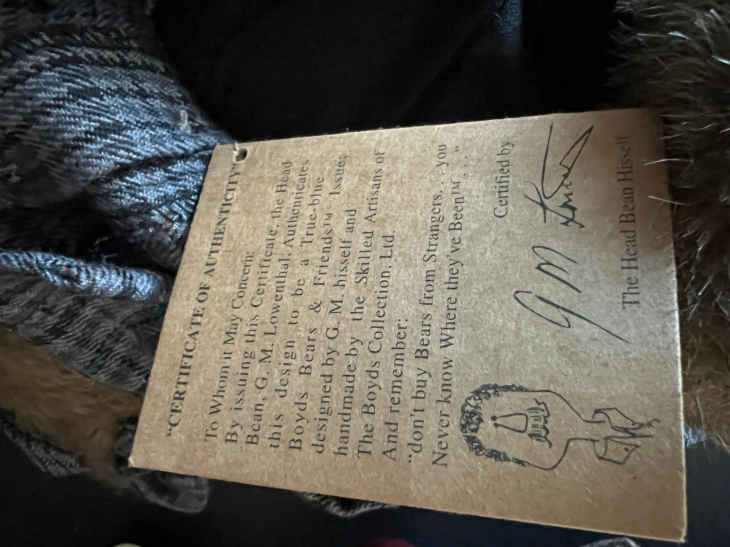 "CERTIFICATE OF AUTHENTICITY"
To Whom it May Concern:
By issuing this Certificate, the Head
Bean, G. M. Lowenthal, Authenticates
this design to be a True-blue
Boyds Bears & Friends™ Issue,
designed by G. M. hisself and
handmade by the Skilled Artisans of
The Boyds Collection, Ltd.
And remember:
"don't buy Bears from Strangers. . . you
Never know Where they've Been™. . ."
Certified by
G M
The Head Bean Hisself